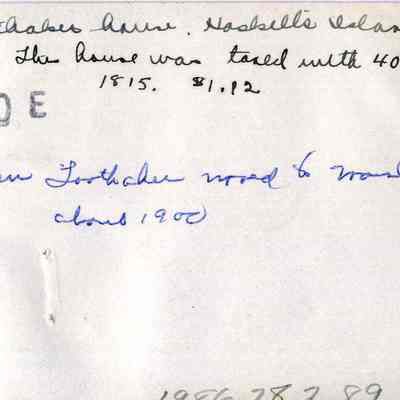 thaker house. Haskell's Islan
The house was taxed with 40
1815. $1.12
D E
en Toothaker moved to
about 1900
1986.28.2.89